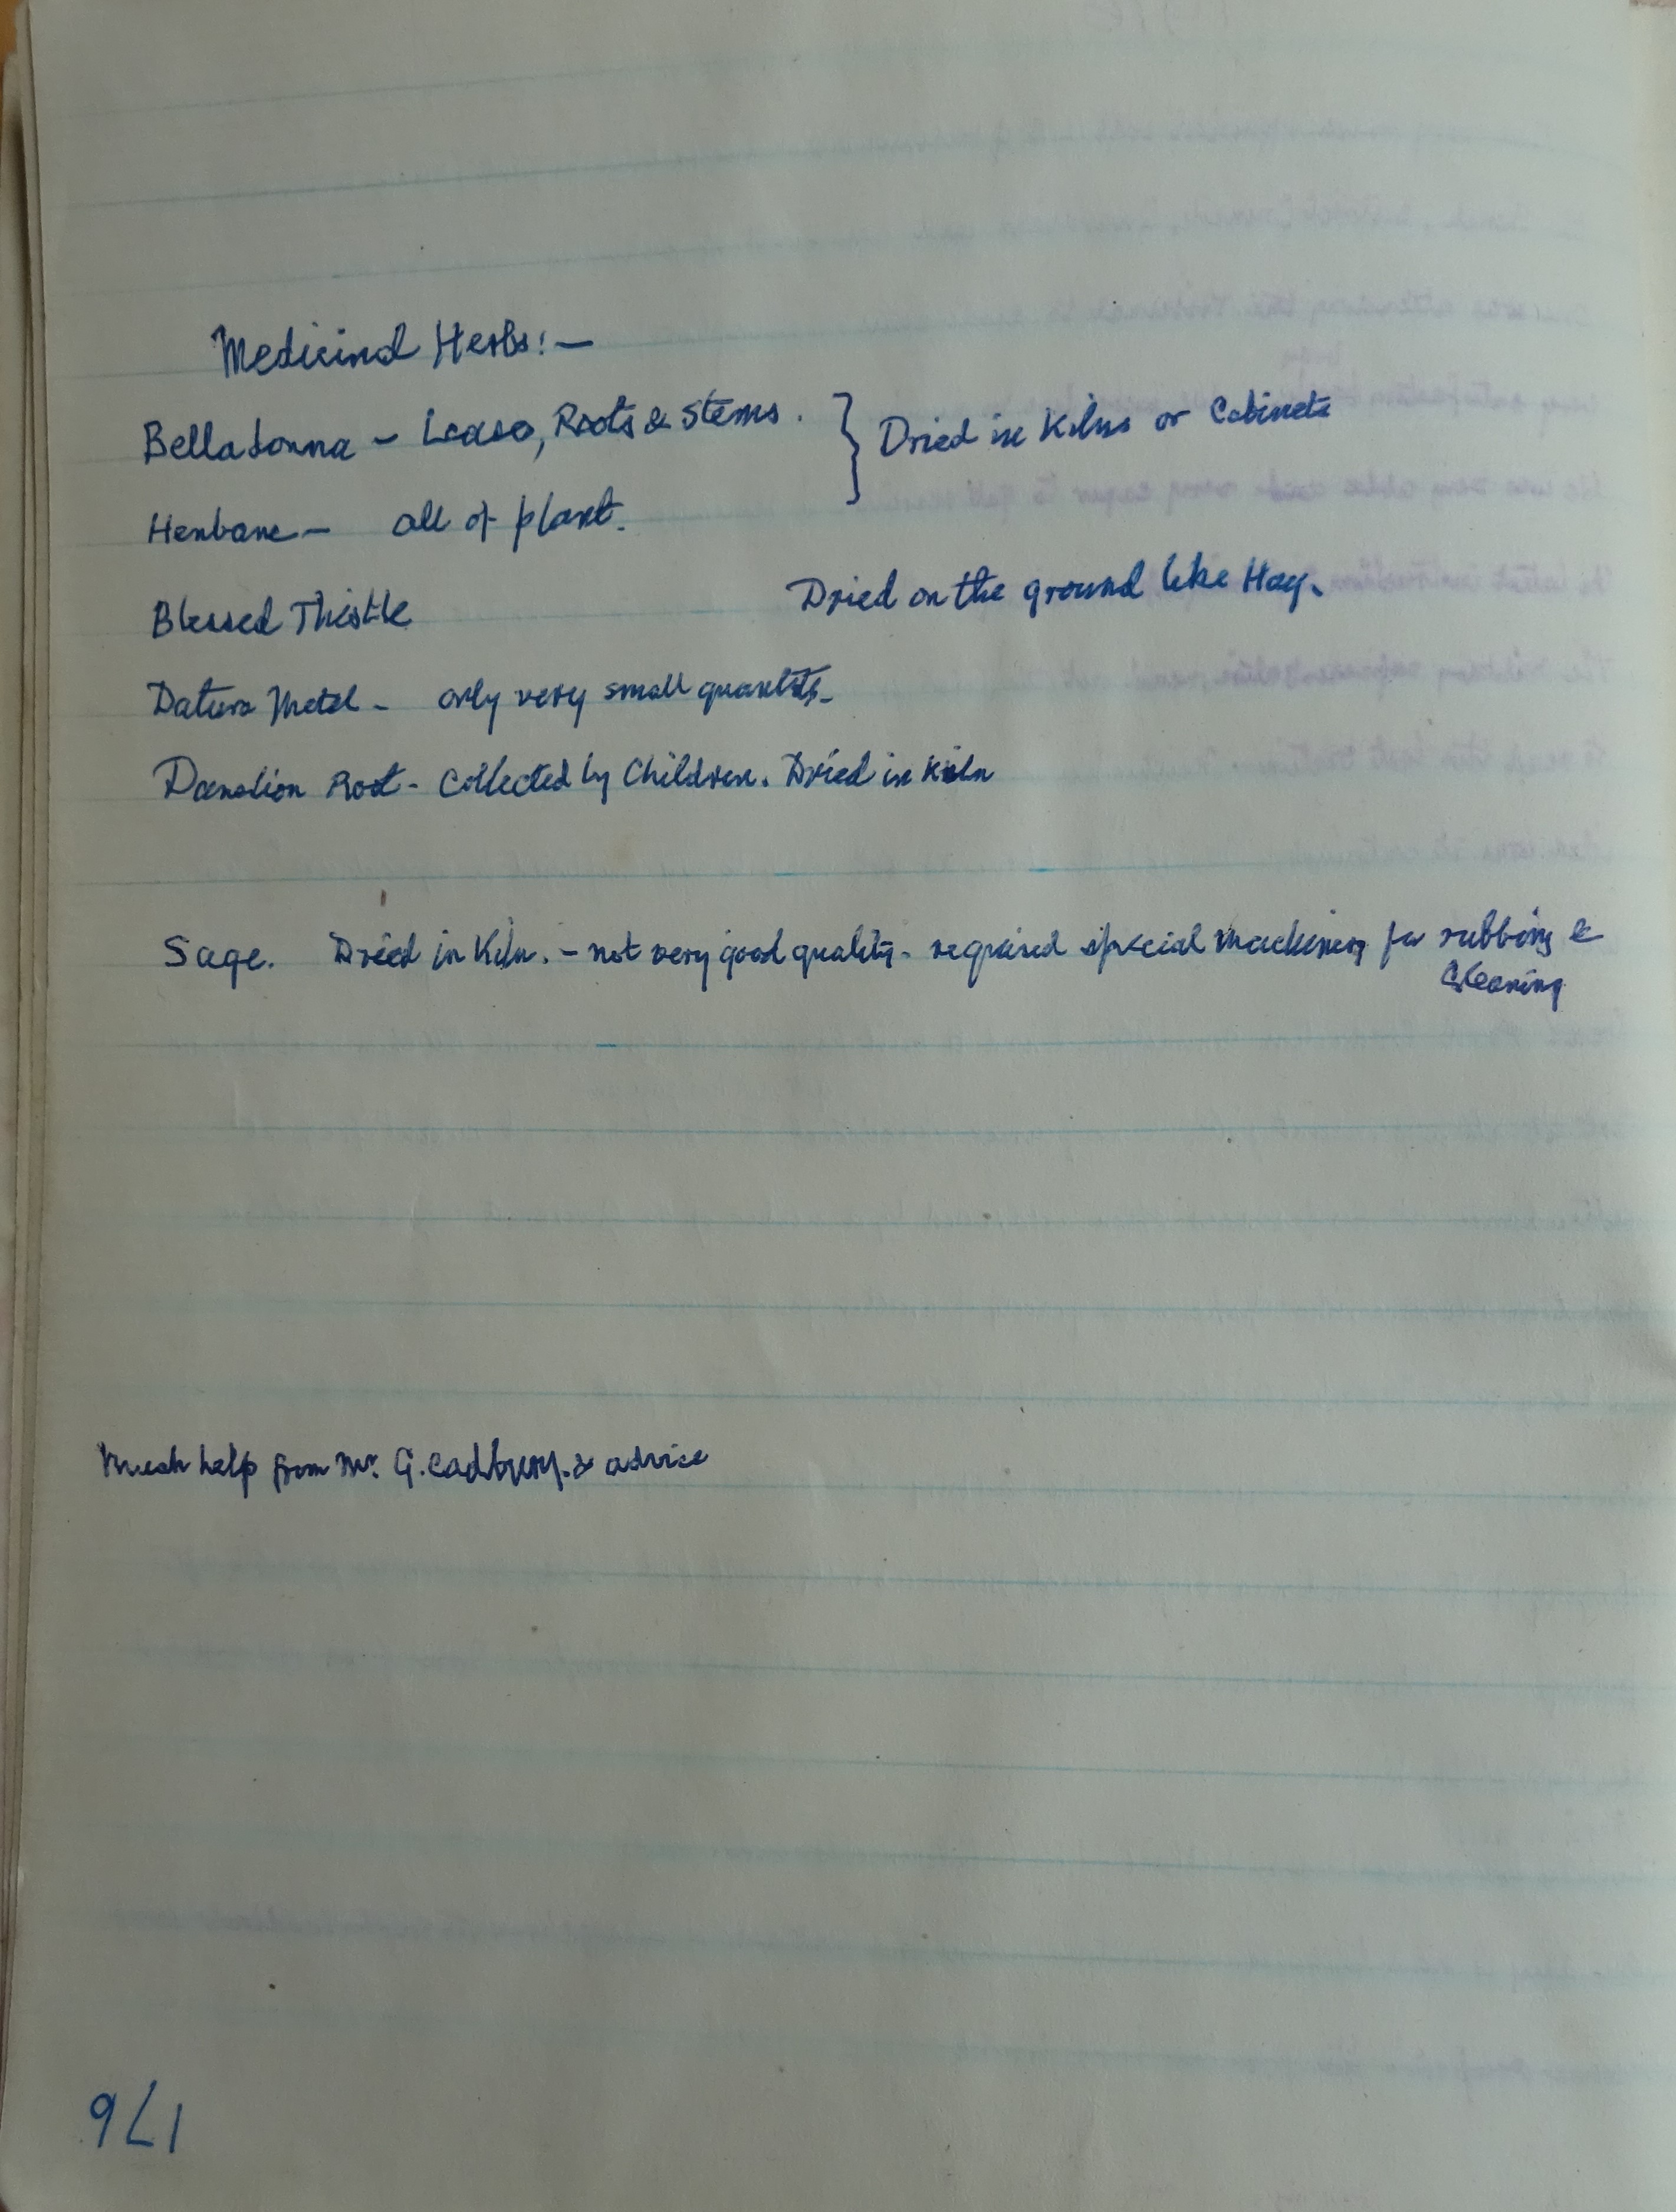 Medicinal Herbs:—
Belladonna – Leaves, Roots & Stems. } Dried in Kilns or Cabinets
Henbane – all of plant.
Blessed Thistle Dried on the ground like Hay.
Datura Metel – only very small quantity.
Danelion Root – Collected by Children. Dried in Kiln
Sage. Dried in Kiln. – not very good quality. required special machinery for rubbing &
Cleaning
Much help from Mr. G. Cadbury. & advice
176